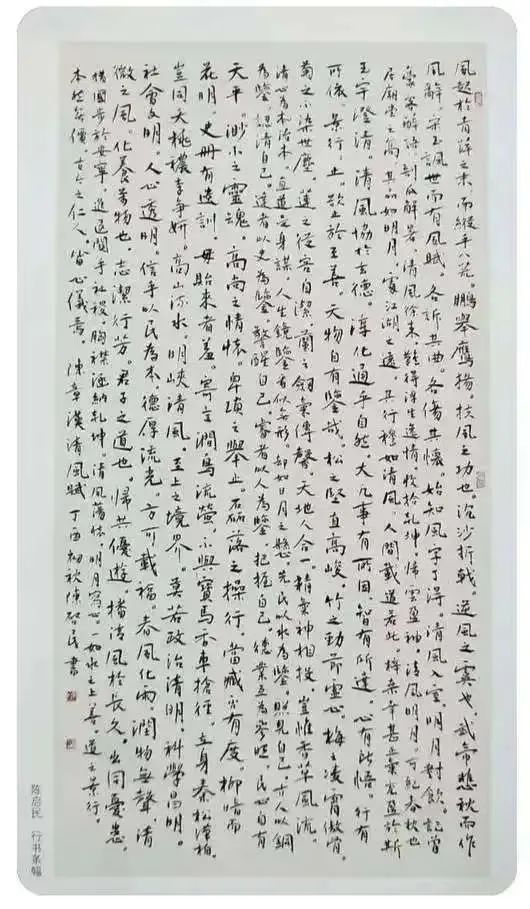 風起於青蘋之末，而縱乎八荒。鵬舉鷹揚，扶風之功也。沉沙折戟，逆風之虞也。武帝悲秋而作
風辭，宋玉諷世而有風賦。各訴其曲，各傷其懷。始知風字了得。清風入室，明月對飲。記曾
解語，剖瓜解暑。清風徐來，難得浮生逸情，收拾乾坤，歸雲盈神。清風明月，可配春秋也
居廟堂之高，其品如明月。處江湖之遠，其行穆如清風。人間載道若此，梓桑幸甚。正氣充盈於斯
玉宇澄清。清風協於玄德，淳化通乎自然。大凡事有所因，智有所達，心有所悟，行有
所依。景行行止，欲止於至善。天物自有鑒哉。松之堅直高峻，竹之勁節虛心，梅之凌霄傲骨，
菊之不染世塵，蓮之從容自潔，蘭之氣傳馨。天地人合一，精靈神相投。豈惟香草風流。
清心為治本，直道乃身謀。人生鏡鑒有似無形，卻如日月之懸也。先民以水為鑒，照見自己。古人以銅
為鑒，認清自己。達者以史為鑒，警醒自己。睿者以人為鑒，把握自己。德業互為參照，民心自有
天平。渺小之靈魂，高尚之情懷。卑瑣之舉止，磊落之操行。當臧否有度。柳暗而
花明。史冊有遺訓，毋貽來者羞。寄言澗鳥流螢，不與寶馬香車搶徑。立身秦松漢柏，
豈同夭桃穠李爭妍。高山流水，明峽清風。至上之境界，莫若政治清明，科學昌明，
社會文明，人心透明。信乎以民為本，德厚流光，方可載福。春風化雨，潤物無聲。清
微之風，化養萬物也。志潔行芳，君子之道也。歸其優遊，播清風於長久。出同憂患，
措國步於安寧，進退關乎社稷，胸襟涵納乾坤。清風蕩懷，明月寫心。一如水之上善，道之景行。
本無價，古今之仁人，皆心儀焉。陳章漢清風賦 丁酉初秋陳啓民書
陈启民 行书条幅